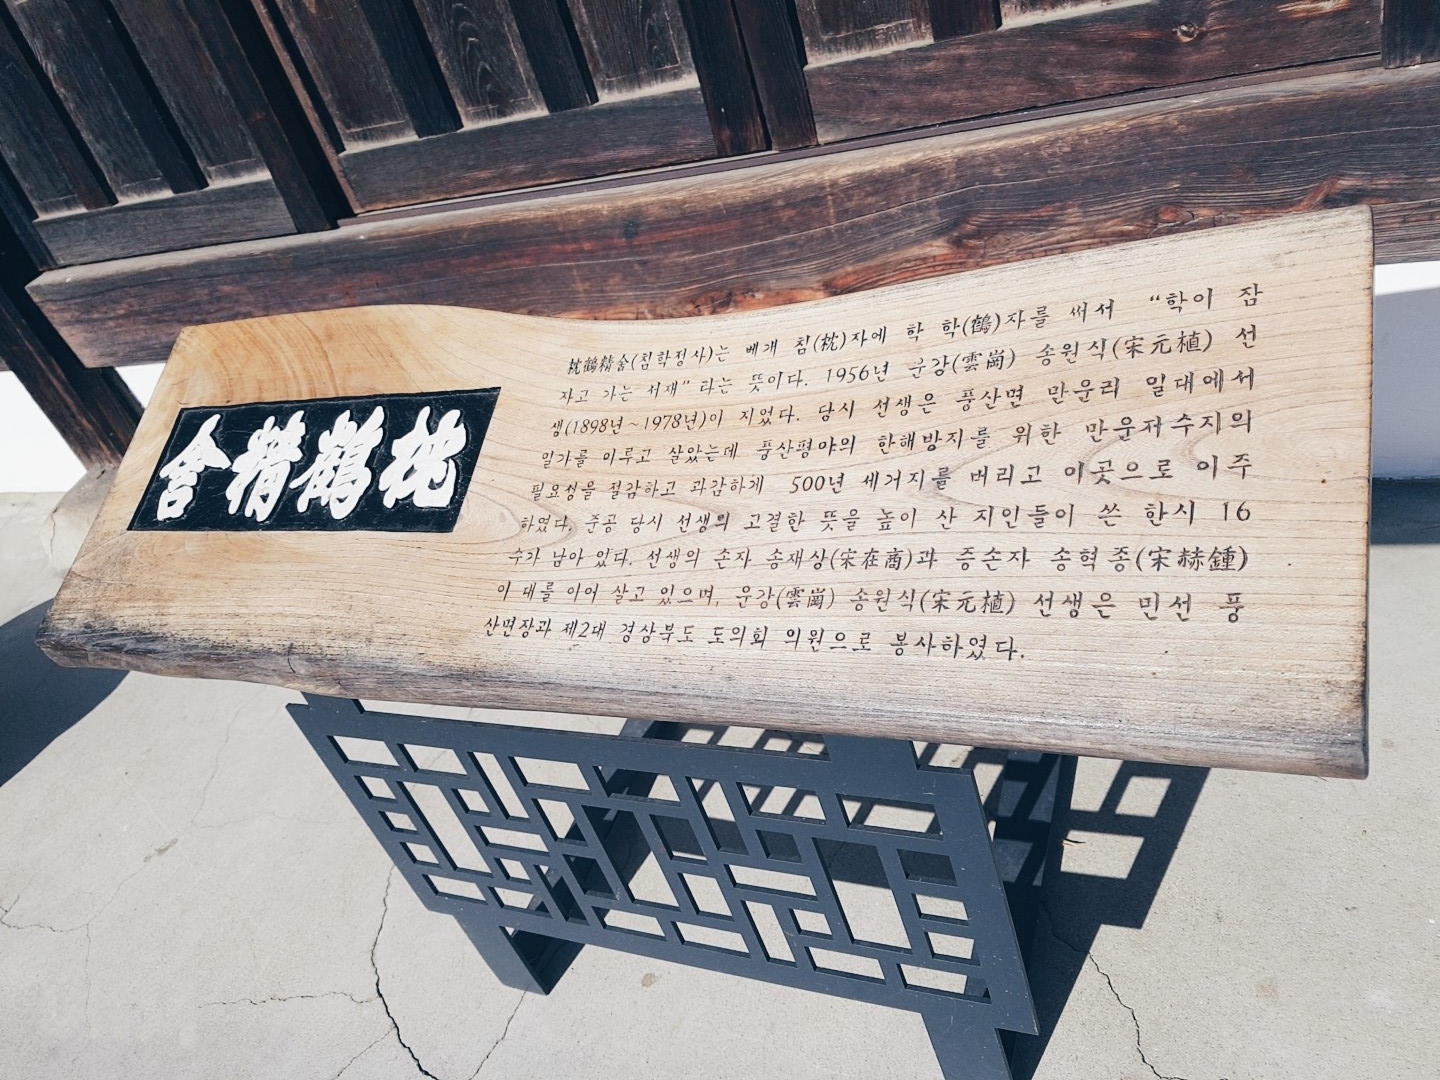 枕鶴精舍
枕鶴精舍(침학정사)는 베개 침(枕)자에 학 학(鶴)자를 써서 “학이 잠
자고 가는 서재”라는 뜻이다. 1956년 운강(雲崗) 송원식(宋元植) 선
생(1898년~1978년)이 지었다. 당시 선생은 풍산면 만운리 일대에서
일가를 이루고 살았는데 풍산평야의 한해방지를 위한 만운저수지의
필요성을 절감하고 과감하게 500년 세거지를 버리고 이곳으로 이주
하였다. 준공 당시 선생의 고결한 뜻을 높이 산 지인들이 쓴 한시 16
수가 남아 있다. 선생의 손자 송재상(宋在商)과 증손자 송혁종(宋赫鍾)
이 대를 이어 살고 있으며, 운강(雲崗) 송원식(宋元植) 선생은 민선 풍
산면장과 제2대 경상북도 도의회 의원으로 봉사하였다.